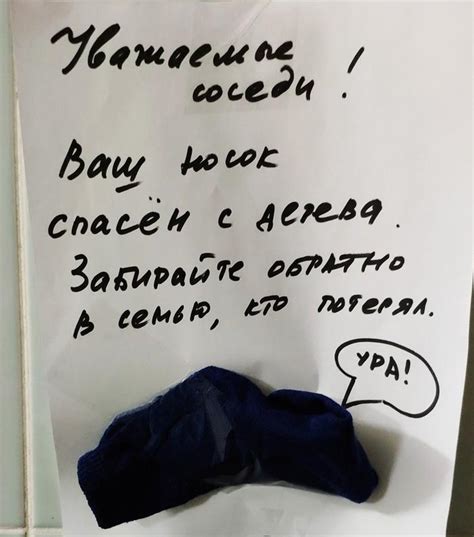 Уважаемые
соседи!
Ваш носок
спасён с дерева.
Забирайте обратно
в семью, кто потерял.
УРА!